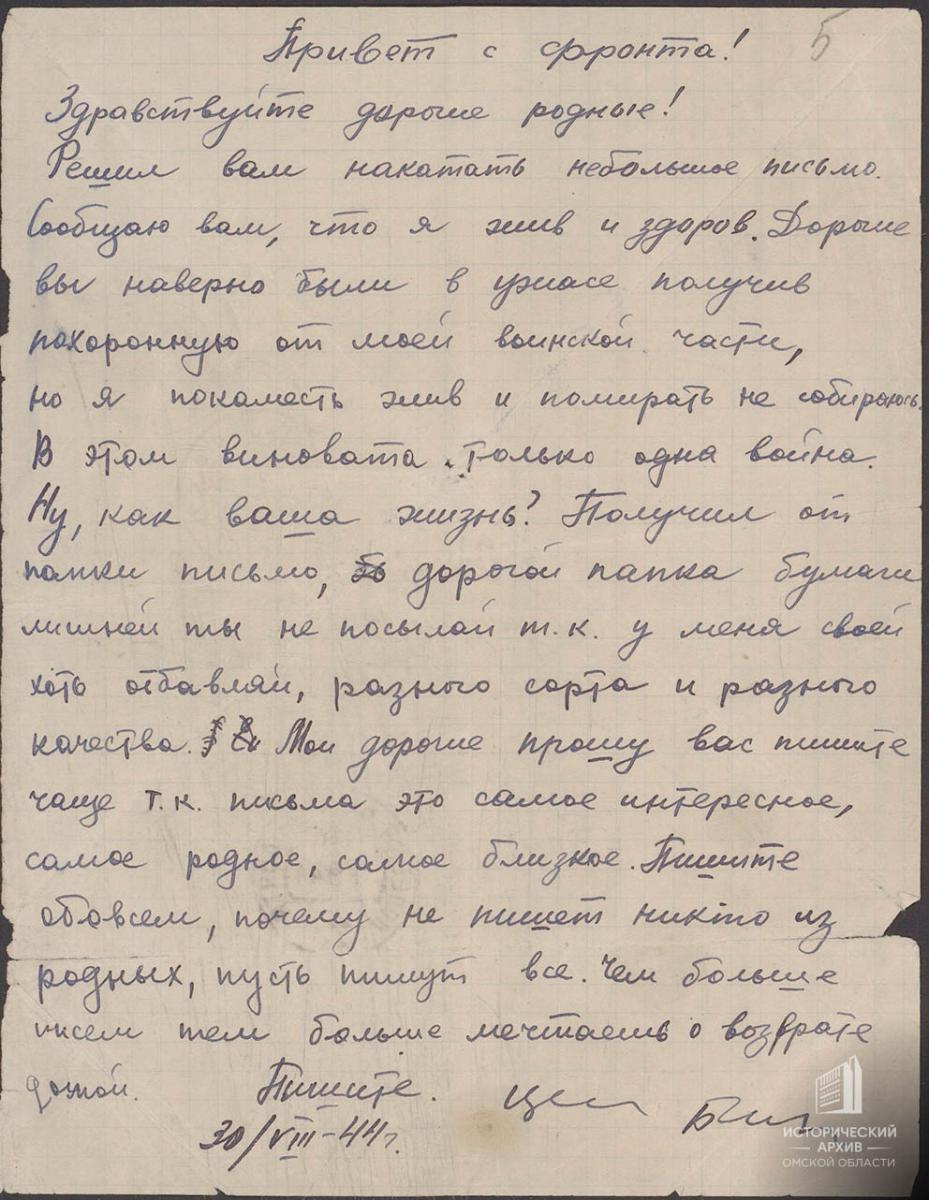 5
Привет с фронта!
Здравствуйте дорогие родные!
Решил вам накатать небольшое письмо.
Сообщаю вам, что я жив и здоров. Дорогие
вы наверно были в ужасе получив
похоронную от моей воинской части,
но я покаместь жив и помирать не собираюсь.
В этом виновата только одна война.
Ну, как ваша жизнь? Получил от
папки письмо, дорогой папка бумаги
лишней ты не посылай т.к. у меня своей
хоть отбавляй, разного сорта и разного
качества. Мои дорогие прошу вас пишите
чаще т.к. письма это самое интересное,
самое родное, самое близкое. Пишите
обовсем, почему не пишет никто из
родных, пусть пишут все. Чем больше
писем тем больше мечтаешь о возврате
домой. Пишите.
30/VIII-44г.
ИСТОРИЧЕСКИЙ
АРХИВ
ОМСКОЙ ОБЛАСТИ